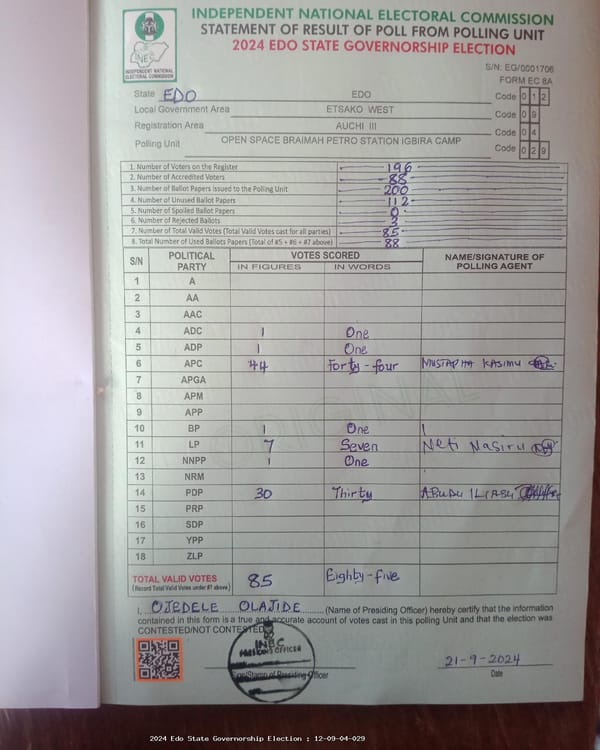 INDEPENDENT NATIONAL ELECTORAL COMMISSION
STATEMENT OF RESULT OF POLL FROM POLLING UNIT
2024 EDO STATE GOVERNORSHIP ELECTION
INEC
INDEPENDENT NATIONAL ELECTORAL COMMISSION
S/N: EG/0001706
FORM EC 8A
State EDO EDO Code 0 1 2
Local Government Area ETSAKO WEST Code 0 9
Registration Area AUCHI III Code 0 4
Polling Unit OPEN SPACE BRAIMAH PETRO STATION IGBIRA CAMP Code 0 2 9
1. Number of Voters on the Register 196
2. Number of Accredited Voters 88
3. Number of Ballot Papers issued to the Polling Unit 200
4. Number of Unused Ballot Papers 112
5. Number of Spoiled Ballot Papers 0
6. Number of Rejected Ballots 3
7. Number of Total Valid Votes (Total Valid Votes cast for all parties) 85
8. Total Number of Used Ballots Papers (Total of #5 + #6 + #7 above) 88
S/N POLITICAL PARTY VOTES SCORED NAME/SIGNATURE OF POLLING AGENT
IN FIGURES IN WORDS
1 A
2 AA
3 AAC
4 ADC 1 One
5 ADP 1 One
6 APC 44 Forty-four MUSTAPHA KASIMU
7 APGA
8 APM
9 APP
10 BP 1 One
11 LP 7 Seven Neti Nasiru
12 NNPP 1 One
13 NRM
14 PDP 30 Thirty ABUDU ILIASU
15 PRP
16 SDP
17 YPP
18 ZLP
TOTAL VALID VOTES 85 Eighty-five
(Record Total Valid Votes under #7 above)
ORIGINAL
I, OJEDELE OLAJIDE (Name of Presiding Officer) hereby certify that the information
contained in this form is a true and accurate account of votes cast in this polling Unit and that the election was
CONTESTED/NOT CONTESTED
INEC
PRESIDING OFFICER
Sign/Stamp of Presiding Officer
21-9-2024
Date
2024 Edo State Governorship Election : 12-09-04-029